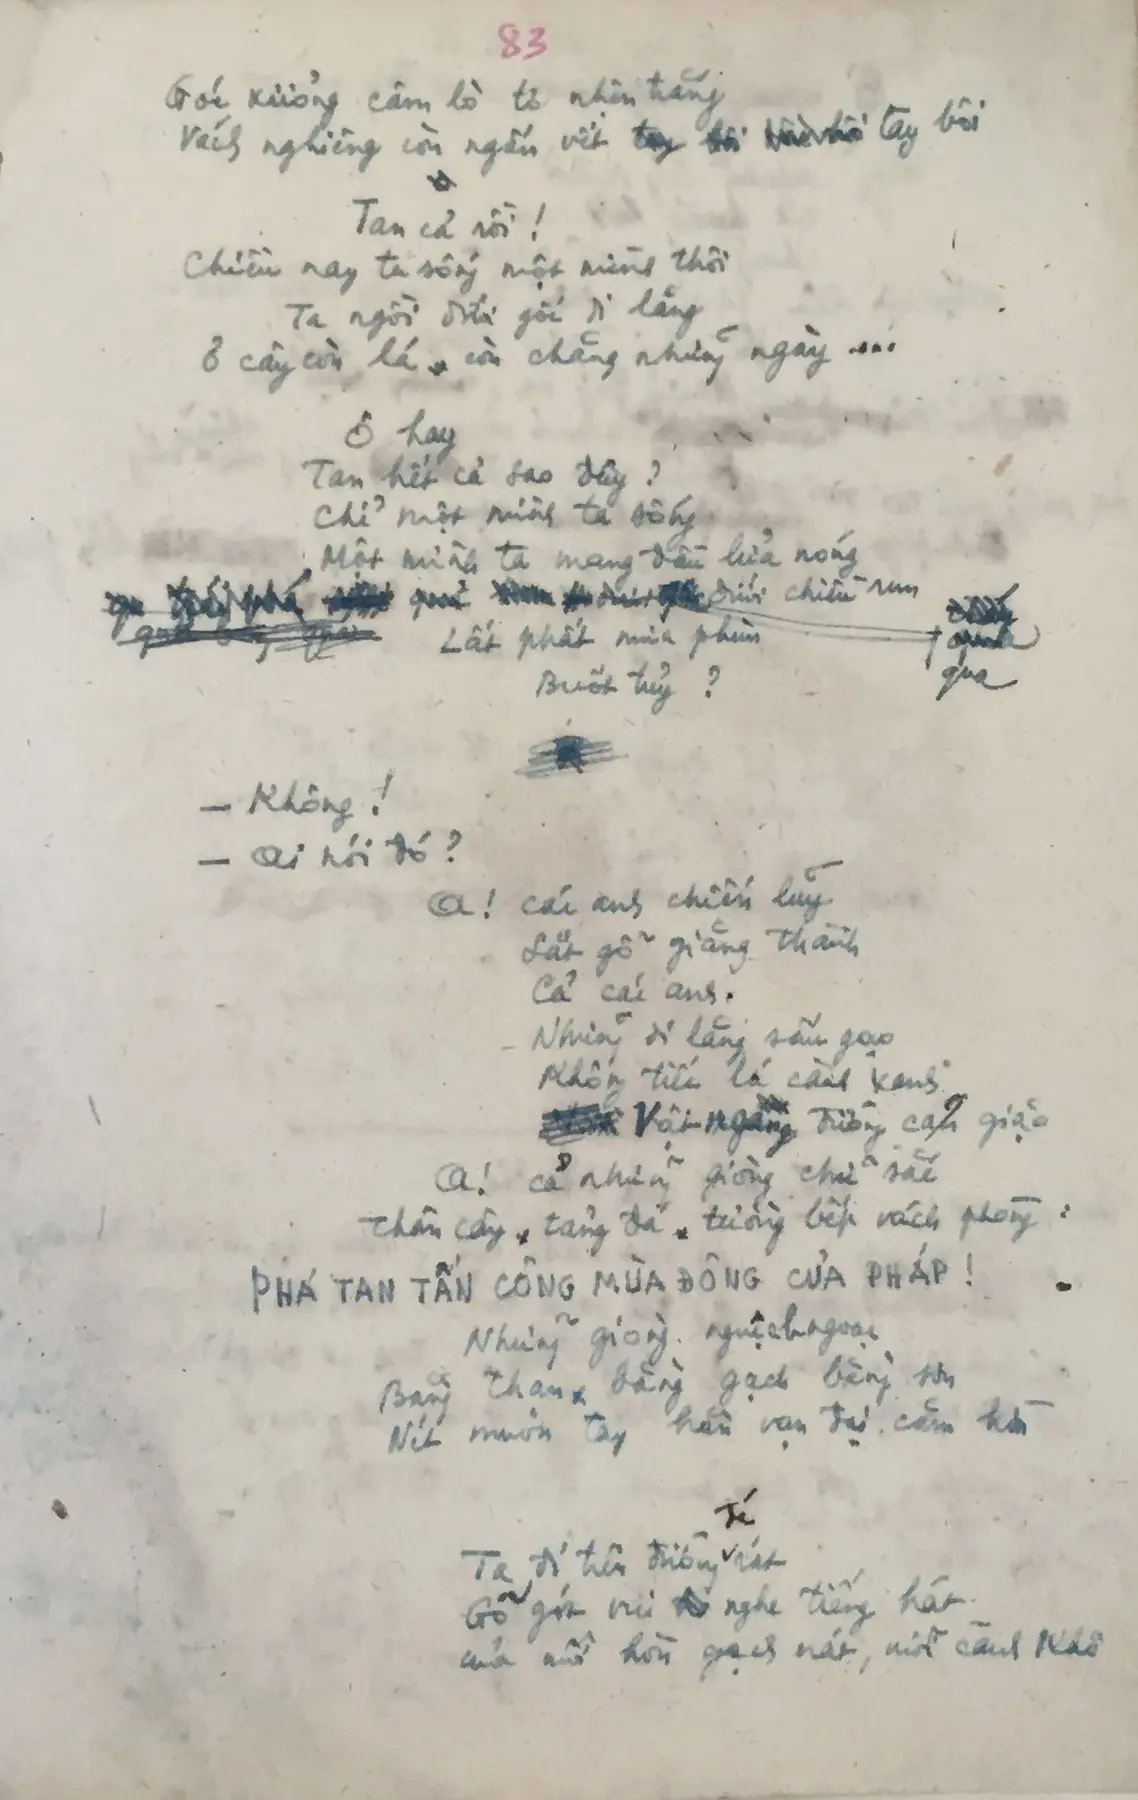 83
Góc xưởng câm lò tơ nhện trắng
Vách nghiêng còn ngấn vết tay bôi
Tan cả rồi !
Chiều nay ta sống một mình thôi
Ta ngồi dưới gốc dì lăng
Ô cây còn lá, còn chăng những ngày ...
Ô hay
Tan hết cả sao đây ?
Chỉ một mình ta sống
Một mình ta mang đầu lửa nóng
qua dưới chiều run
Lất phất mưa phùn
Buốt tủy ?
— Không !
— Ai nói đó ?
A! các anh chiến lũy
Sắt gỗ giăng thành
Cả các anh.
Những dì lăng sấu gạo
Không tiếc lá cành xanh
Vật ngang đường cản giặc
A! cả những giòng chữ sắc
Thân cây, tảng đá, tường bếp vách phòng :
PHÁ TAN TẤN CÔNG MÙA ĐÔNG CỦA PHÁP !
Những giòng nguệch ngoạc
Bằng than, bằng gạch bằng sơn
Nét muôn tay hằn vạn đại căm hờn
Ta đi trên đường tê rát
Gõ gót vui nghe tiếng hát
của mỗi hòn gạch nát, mỗi cành khô